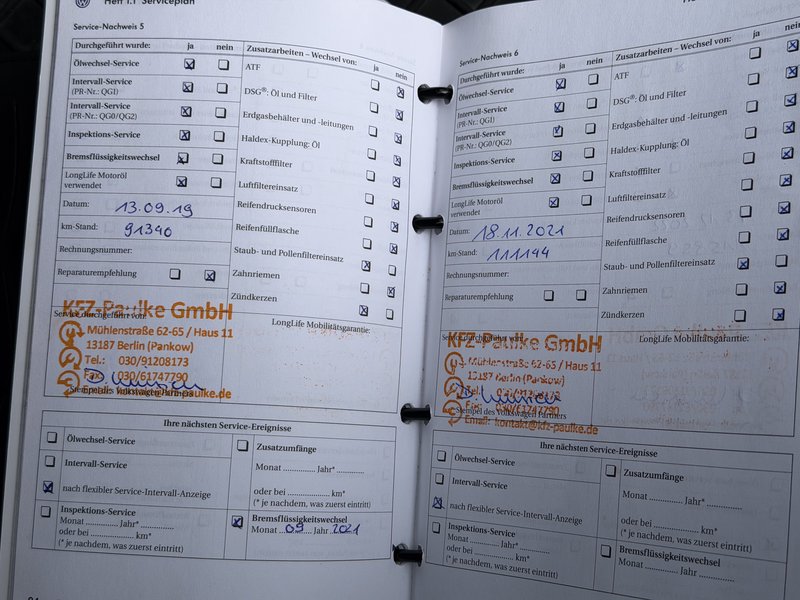 Heft 1.1 Serviceplan
Service-Nachweis 5
Durchgeführt wurde: ja nein
Zusatzarbeiten – Wechsel von: ja nein
Ölwechsel-Service
Intervall-Service
(PR-Nr.: QGI)
Intervall-Service
(PR-Nr.: QG0/QG2)
Inspektions-Service
Bremsflüssigkeitswechsel
LongLife Motoröl
verwendet
Datum: 13.09.19
km-Stand: 91340
Rechnungsnummer:
Reparaturempfehlung
ATF
DSG®: Öl und Filter
Erdgasbehälter und -leitungen
Haldex-Kupplung: Öl
Kraftstofffilter
Luftfiltereinsatz
Reifendrucksensoren
Reifenfüllflasche
Staub- und Pollenfiltereinsatz
Zahnriemen
Zündkerzen
Service durchgeführt von:
LongLife Mobilitätsgarantie:
KFZ-Paulke GmbH
Mühlenstraße 62-65 / Haus 11
13187 Berlin (Pankow)
Tel.: 030/91208173
Fax: 030/61747790
Email: kontakt@kfz-paulke.de
Stempel des Volkswagen Partners
Ihre nächsten Service-Ereignisse
Ölwechsel-Service
Intervall-Service
nach flexibler Service-Intervall-Anzeige
Inspektions-Service
Monat .............. Jahr* ..............
oder bei .............. km*
(* je nachdem, was zuerst eintritt)
Zusatzumfänge
Monat .............. Jahr* ..............
oder bei .............. km*
(* je nachdem, was zuerst eintritt)
Bremsflüssigkeitswechsel
Monat 09 Jahr 2021
Service-Nachweis 6
Durchgeführt wurde: ja nein
Zusatzarbeiten – Wechsel von: ja nein
Ölwechsel-Service
Intervall-Service
(PR-Nr.: QGI)
Intervall-Service
(PR-Nr.: QG0/QG2)
Inspektions-Service
Bremsflüssigkeitswechsel
LongLife Motoröl
verwendet
Datum: 18.11.2021
km-Stand: 111144
Rechnungsnummer:
Reparaturempfehlung
ATF
DSG®: Öl und Filter
Erdgasbehälter und -leitungen
Haldex-Kupplung: Öl
Kraftstofffilter
Luftfiltereinsatz
Reifendrucksensoren
Reifenfüllflasche
Staub- und Pollenfiltereinsatz
Zahnriemen
Zündkerzen
Service durchgeführt von:
LongLife Mobilitätsgarantie:
KFZ-Paulke GmbH
Mühlenstraße 62-65 / Haus 11
13187 Berlin (Pankow)
Tel.: 030/91208173
Fax: 030/61747790
Email: kontakt@kfz-paulke.de
Stempel des Volkswagen Partners
Ihre nächsten Service-Ereignisse
Ölwechsel-Service
Intervall-Service
nach flexibler Service-Intervall-Anzeige
Inspektions-Service
Monat .............. Jahr* ..............
oder bei .............. km*
(* je nachdem, was zuerst eintritt)
Zusatzumfänge
Monat .............. Jahr* ..............
oder bei .............. km*
(* je nachdem, was zuerst eintritt)
Bremsflüssigkeitswechsel
Monat .............. Jahr ..............